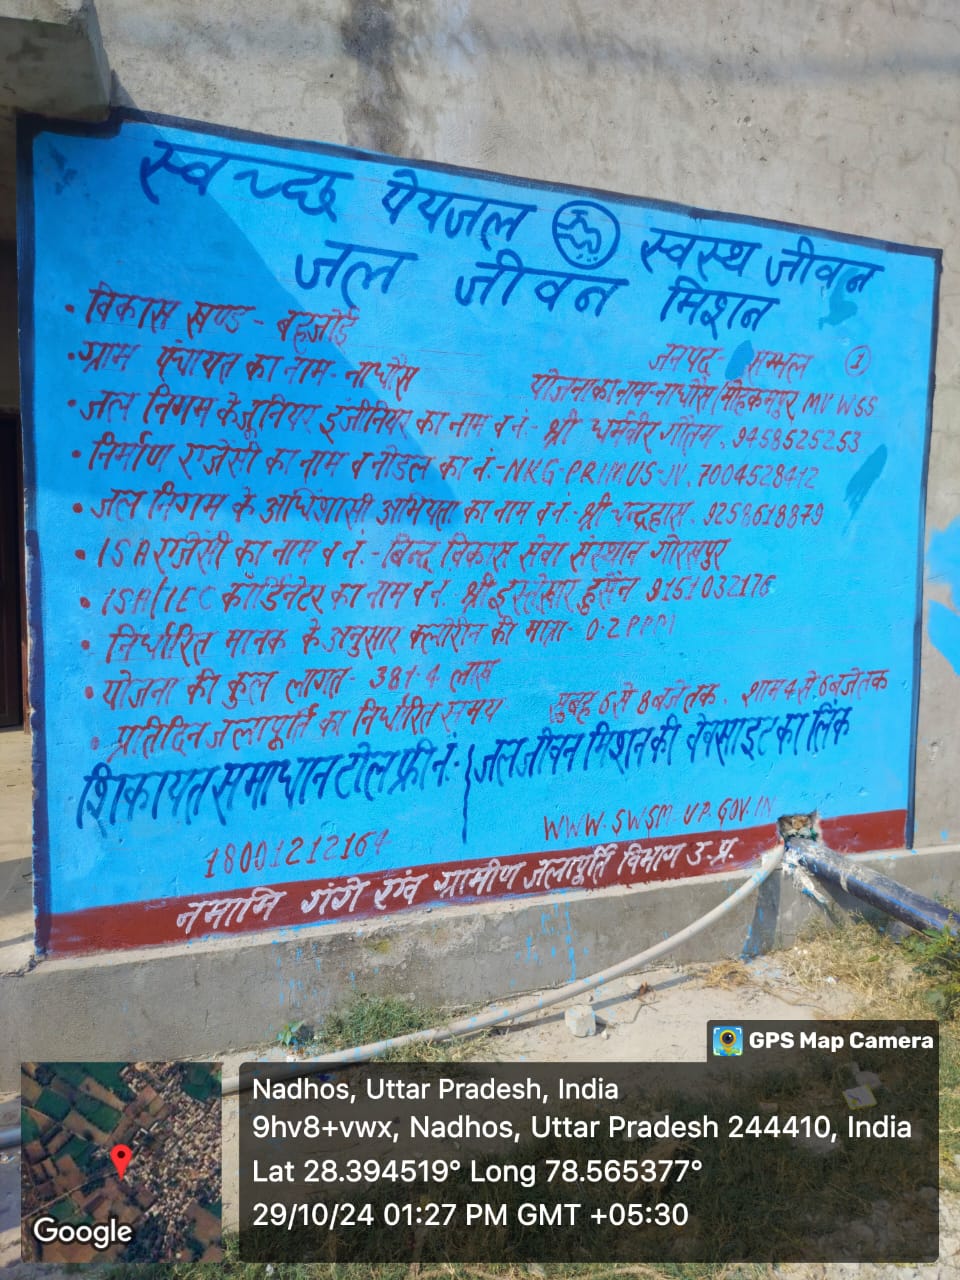 स्वच्छ पेयजल स्वस्थ जीवन
जल जीवन मिशन
• विकास खण्ड - बहजोई
जनपद - सम्भल 1
• ग्राम पंचायत का नाम - नाधौस
योजना का नाम - नाधौस/मोहकमपुर MV WSS
• जल निगम के जूनियर इंजीनियर का नाम व नं. - श्री धर्मवीर गौतम, 9458525253
• निर्माण एजेंसी का नाम व नोडल का नं. - NKG-PRIMUS-JV, 7004528412
• जल निगम के अधिशासी अभियंता का नाम व नं. - श्री चन्द्रहास, 9258618879
• ISA एजेंसी का नाम व नं. - बिन्द विकास सेवा संस्थान गोरखपुर
• ISA/IEC कॉर्डिनेटर का नाम व नं. - श्री इस्तेखार हुसैन 9151032176
• निर्धारित मानक के अनुसार क्लोरीन की मात्रा - 0.2 PPM
• योजना की कुल लागत - 381.4 लाख
• प्रतिदिन जलापूर्ति का निर्धारित समय सुबह 6 से 8 बजे तक, शाम 4 से 6 बजे तक
शिकायत समाधान टोल फ्री नं. - जल जीवन मिशन की वेबसाइट का लिंक
18001212164 WWW.SWSM-UP.GOV.IN
नमामि गंगे एंव ग्रामीण जलापूर्ति विभाग उ.प्र.
GPS Map Camera
Nadhos, Uttar Pradesh, India
9hv8+vwx, Nadhos, Uttar Pradesh 244410, India
Lat 28.394519° Long 78.565377°
29/10/24 01:27 PM GMT +05:30
Google